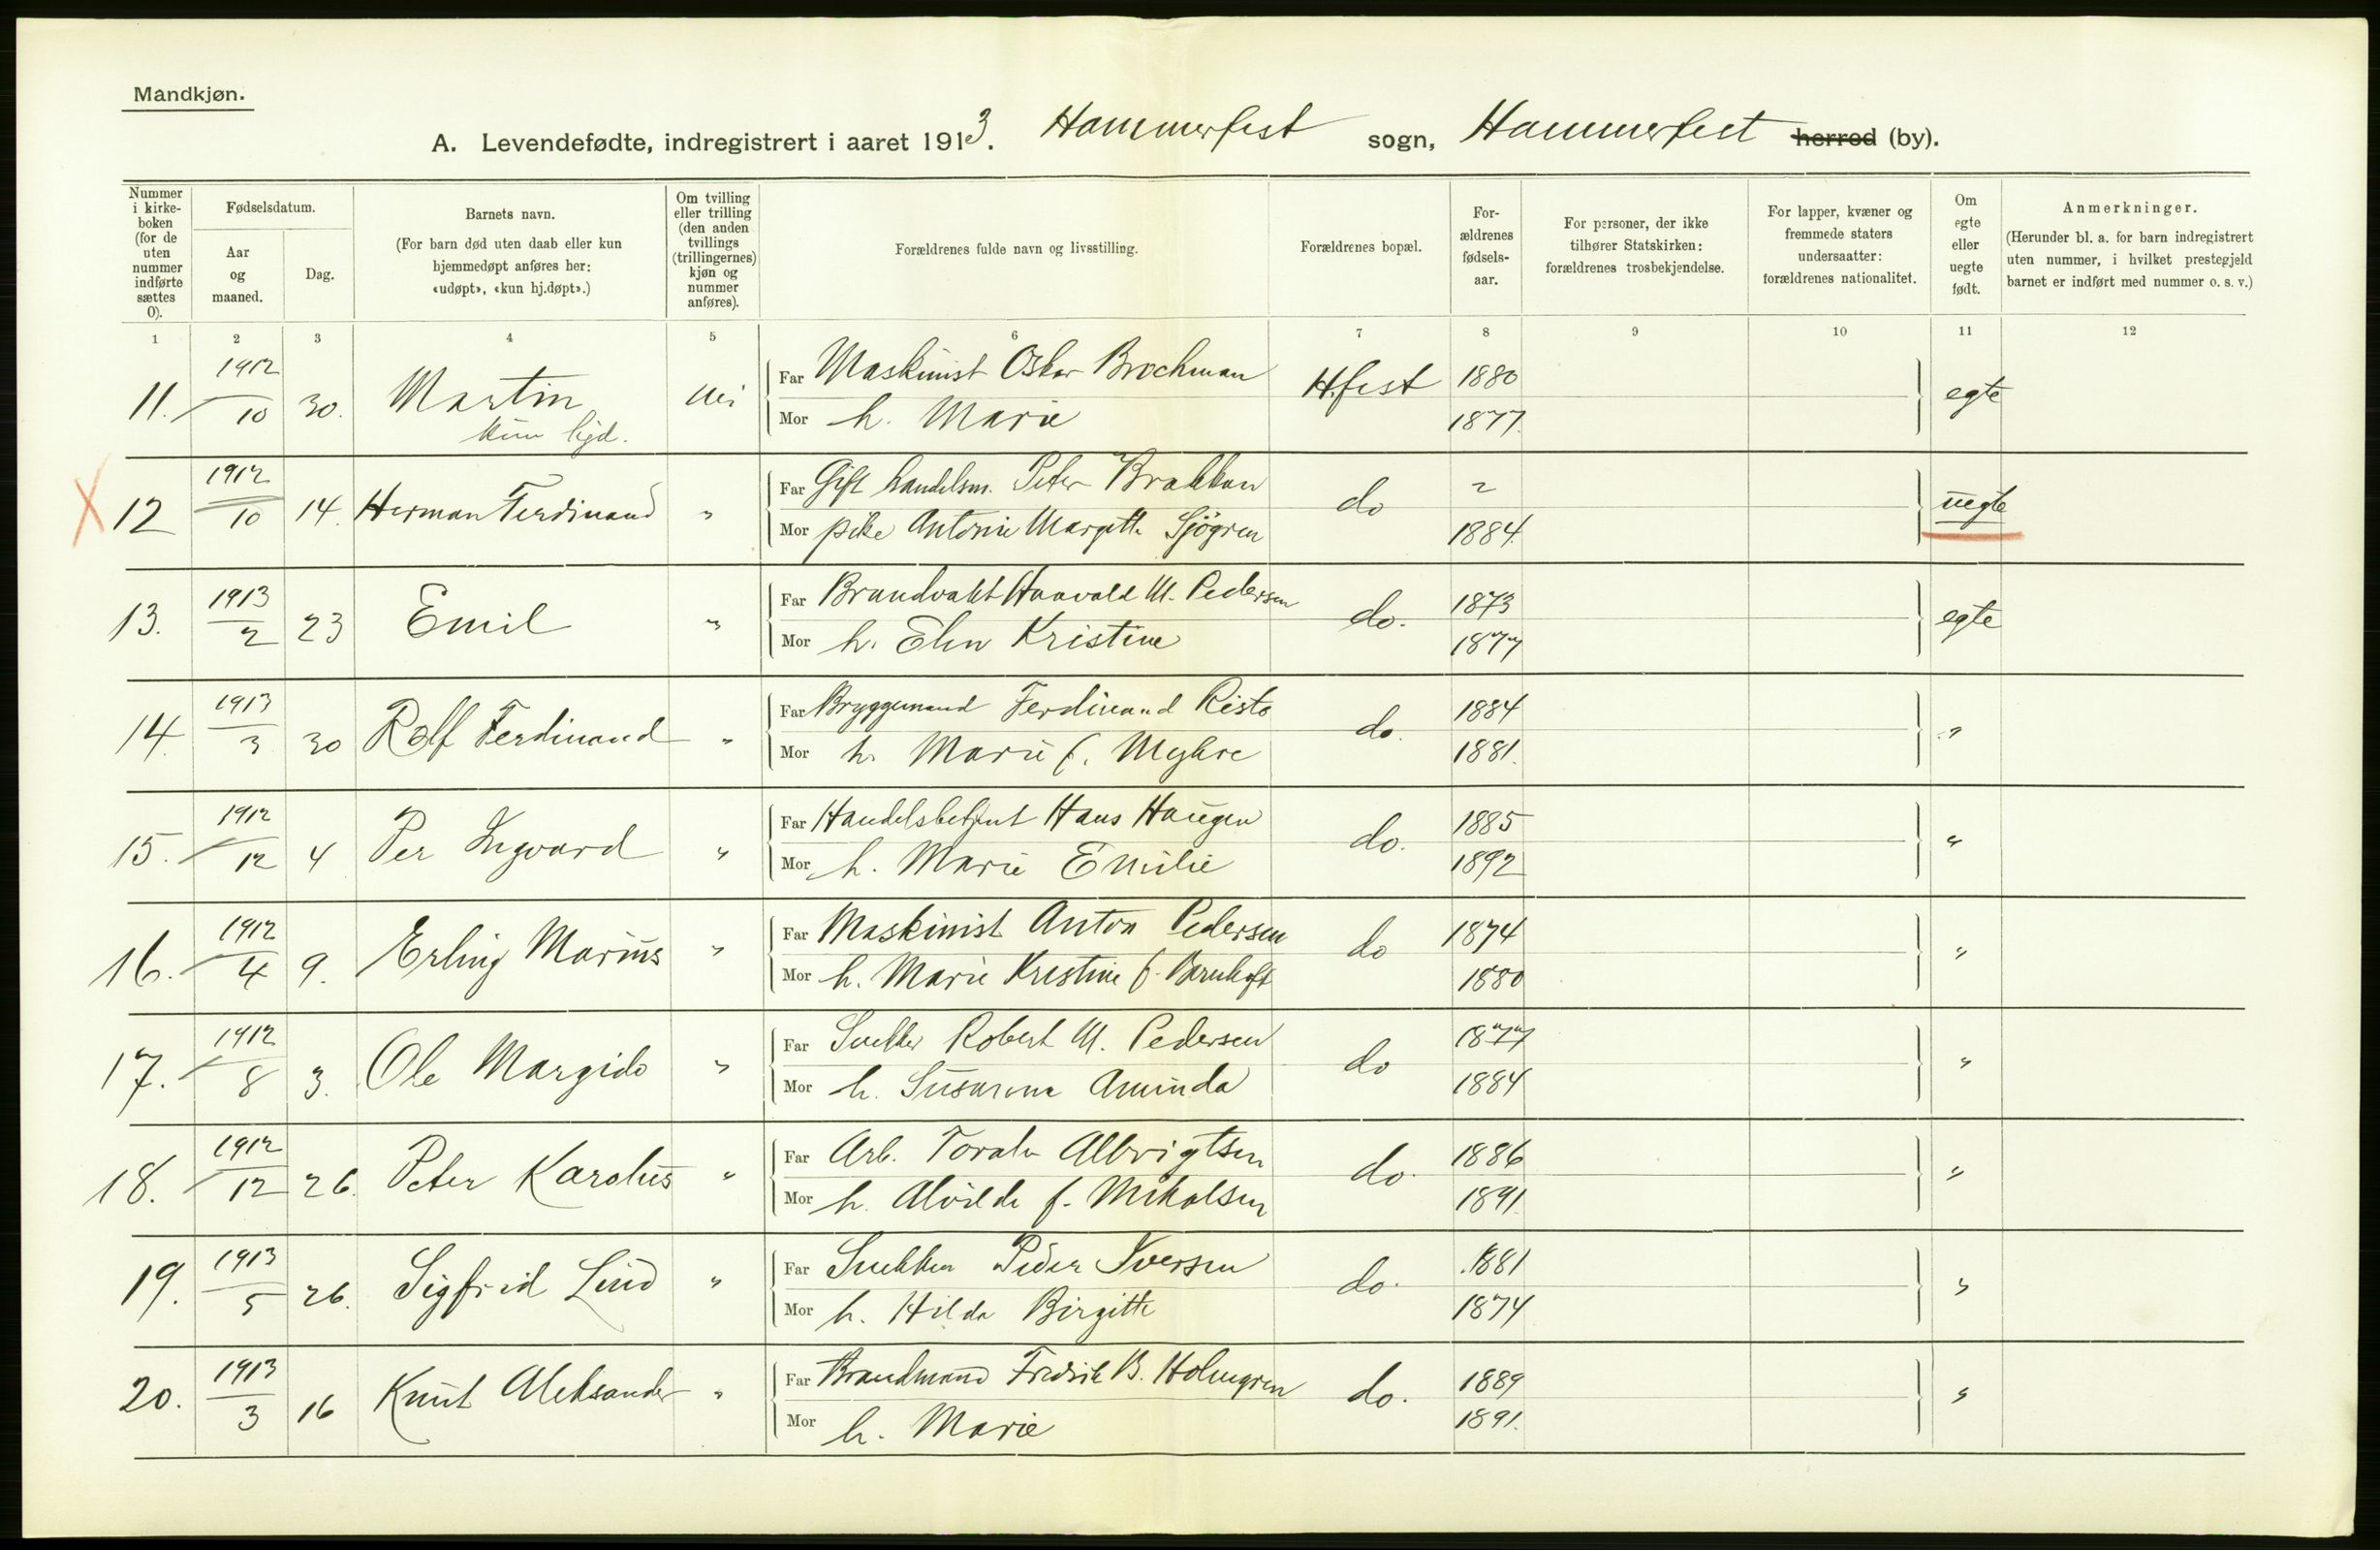 Mandkjøn.
A. Levendefødte, indregistrert i aaret 1913. Hammerfest sogn, Hammerfest herred (by).
Nummer i kirke-boken (for de uten nummer indførte sættes 0).
Fødselsdatum.
Aar og maaned.
Dag.
Barnets navn.
(For barn død uten daab eller kun hjemmedøpt anføres her: «udøpt», «kun hj.døpt».)
Om tvilling eller trilling (den anden tvillings (trillingernes) kjøn og nummer anføres).
Forældrenes fulde navn og livsstilling.
Forældrenes bopæl.
For-ældrenes fødsels-aar.
For personer, der ikke tilhører Statskirken: forældrenes trosbekjendelse.
For lapper, kvæner og fremmede staters undersaatter: forældrenes nationalitet.
Om egte eller uegte født.
Anmerkninger.
(Herunder bl. a. for barn indregistrert uten nummer, i hvilket prestegjeld barnet er indført med nummer o. s. v.)
1 2 3 4 5 6 7 8 9 10 11 12
11. 1912/10 30. Martin nei Far Maskinist Oskar Brochman H.fest 1880 egte
Mor h. Marie 1877.
X 12 1912/10 14. Herman Ferdinand " Far Gift handelsm. Peter Brakkan do ? uegte
Mor pike Antonie Margitte Sjögren 1884.
13. 1913/2 23 Emil " Far Brandvakt Haavald M. Pedersen do. 1873 egte
Mor h. Elen Kristine 1877
14. 1913/3 30 Rolf Ferdinand " Far Bryggemand Ferdinand Risto do. 1884 "
Mor h. Marie f. Myhre 1881.
15. 1912/12 4 Per Ingvard " Far Handelsbetjent Hans Haugen do. 1885 "
Mor h. Marie Emilie 1892
16. 1912/4 9. Erling Marius " Far Maskinist Anton Pedersen do 1874 "
Mor h. Marie Kristine f. Bernhoft 1880
17. 1912/8 3. Ole Margido " Far Snekker Robert M. Pedersen do 1877 "
Mor h. Susanna Aminda 1884
18. 1912/12 26. Peter Karolus " Far Arb. Toralv Albrigtsen do. 1886 "
Mor h. Alvilde f. Mikalsen 1891
19. 1913/5 26. Sigfrid Lind " Far Snekker Peder Iversen do. 1881 "
Mor h. Hilda Birgitte 1874
20. 1913/3 16 Knut Aleksander " Far Brandmand Fredrik B. Holmgren do. 1889 "
Mor h. Marie 1891.